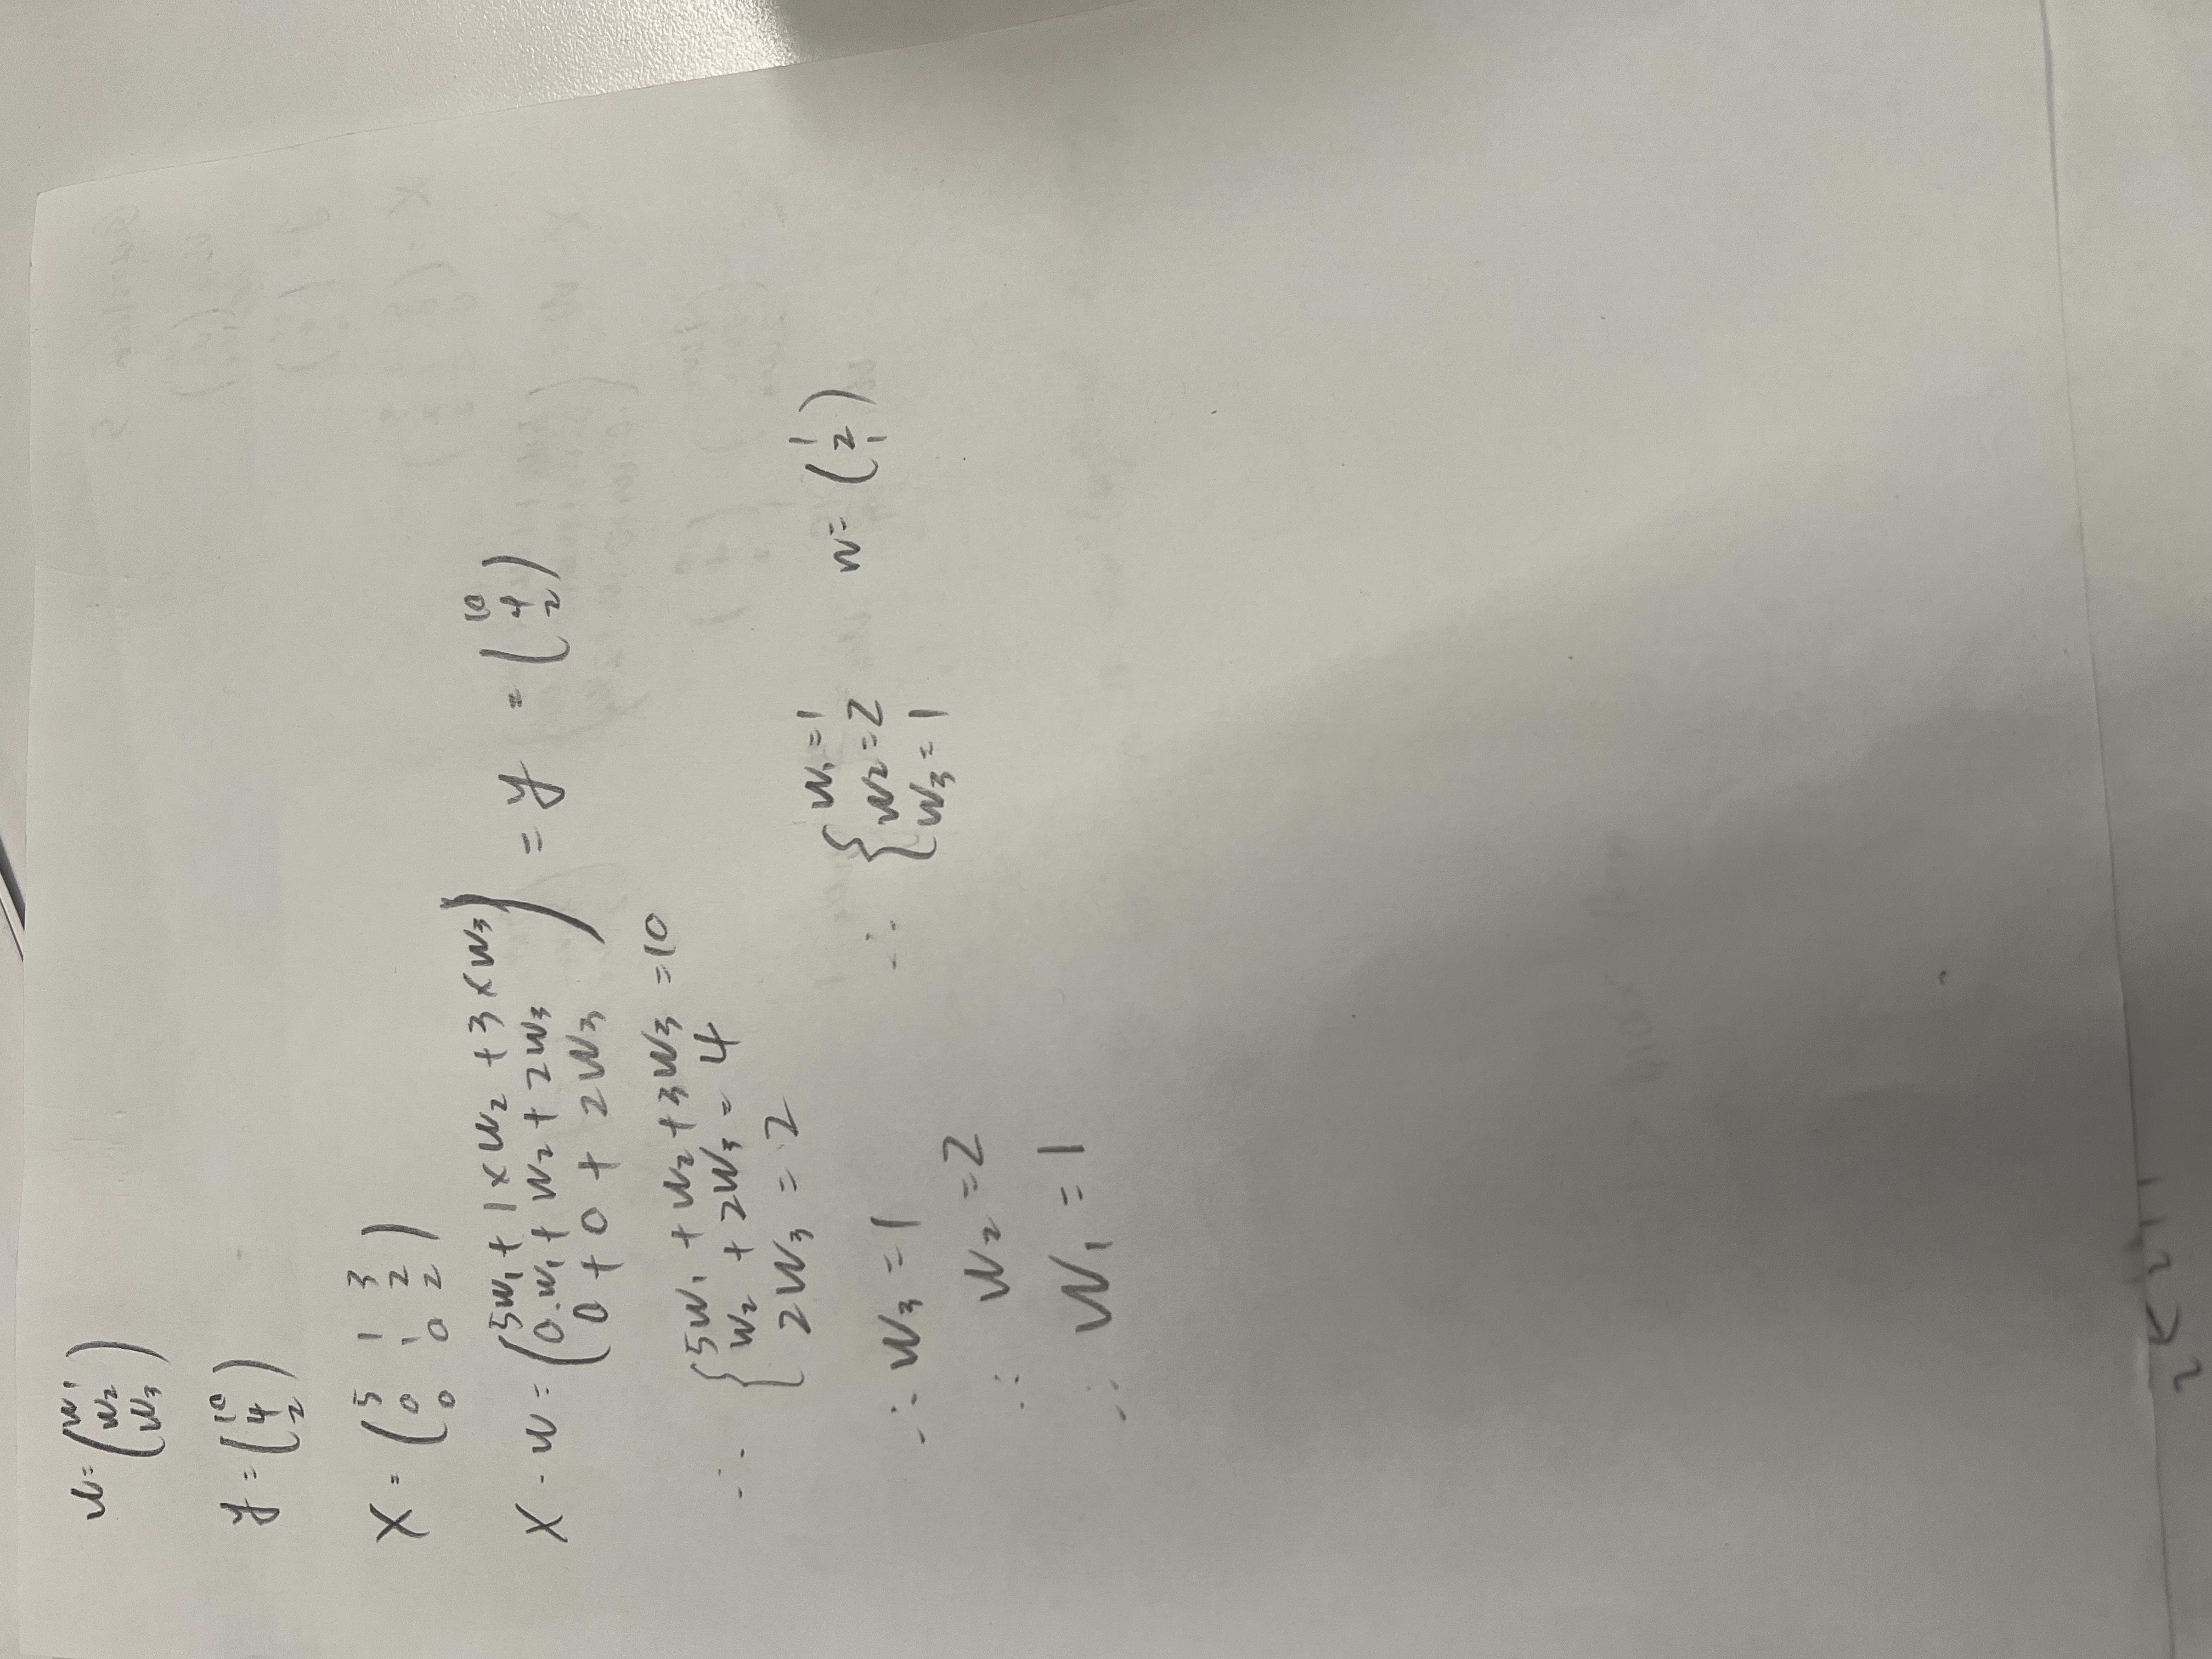 w = (w₁
w₂
w₃)
y = (10
4
2)
X = (5 1 3
0 1 2
0 0 2)
X · w = (5w₁ + 1 × w₂ + 3 × w₃
0·w₁ + w₂ + 2w₃
0 + 0 + 2w₃) = y = (10
4
2)
∴ { 5w₁ + w₂ + 3w₃ = 10
w₂ + 2w₃ = 4
2w₃ = 2
∴ w₃ = 1
∴ w₂ = 2
∴ w₁ = 1
∴ { w₁ = 1
w₂ = 2
w₃ = 1
w = (1
2
1)